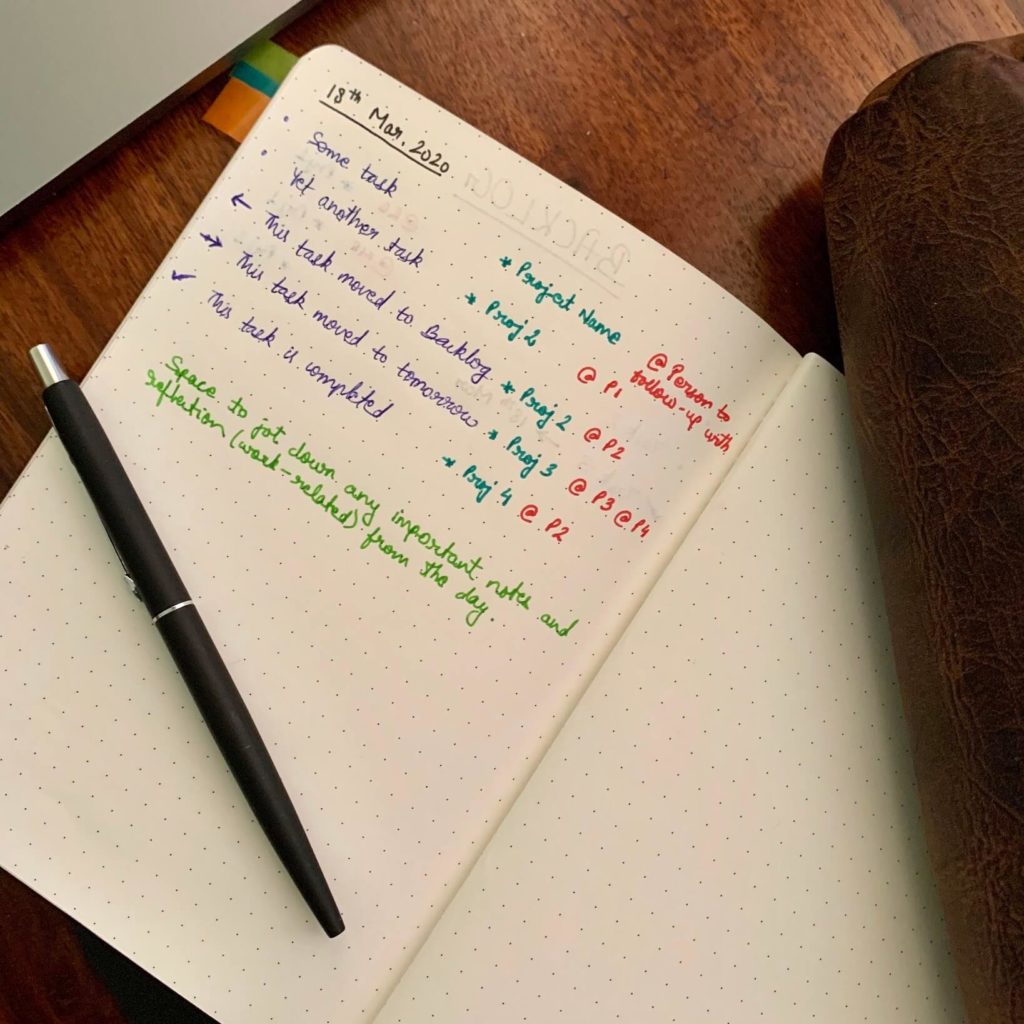 18th Mar, 2020
• Some task * Project Name @Person to
follow-up with
• Yet another task * Proj 2 @ P1
← This task moved to Backlog * Proj 2 @ P2
→ This task moved to tomorrow * Proj 3 @ P3 @ P4
✓ This task is completed * Proj 4 @ P2
Space to jot down any important notes and
reflection (work-related) from the day.